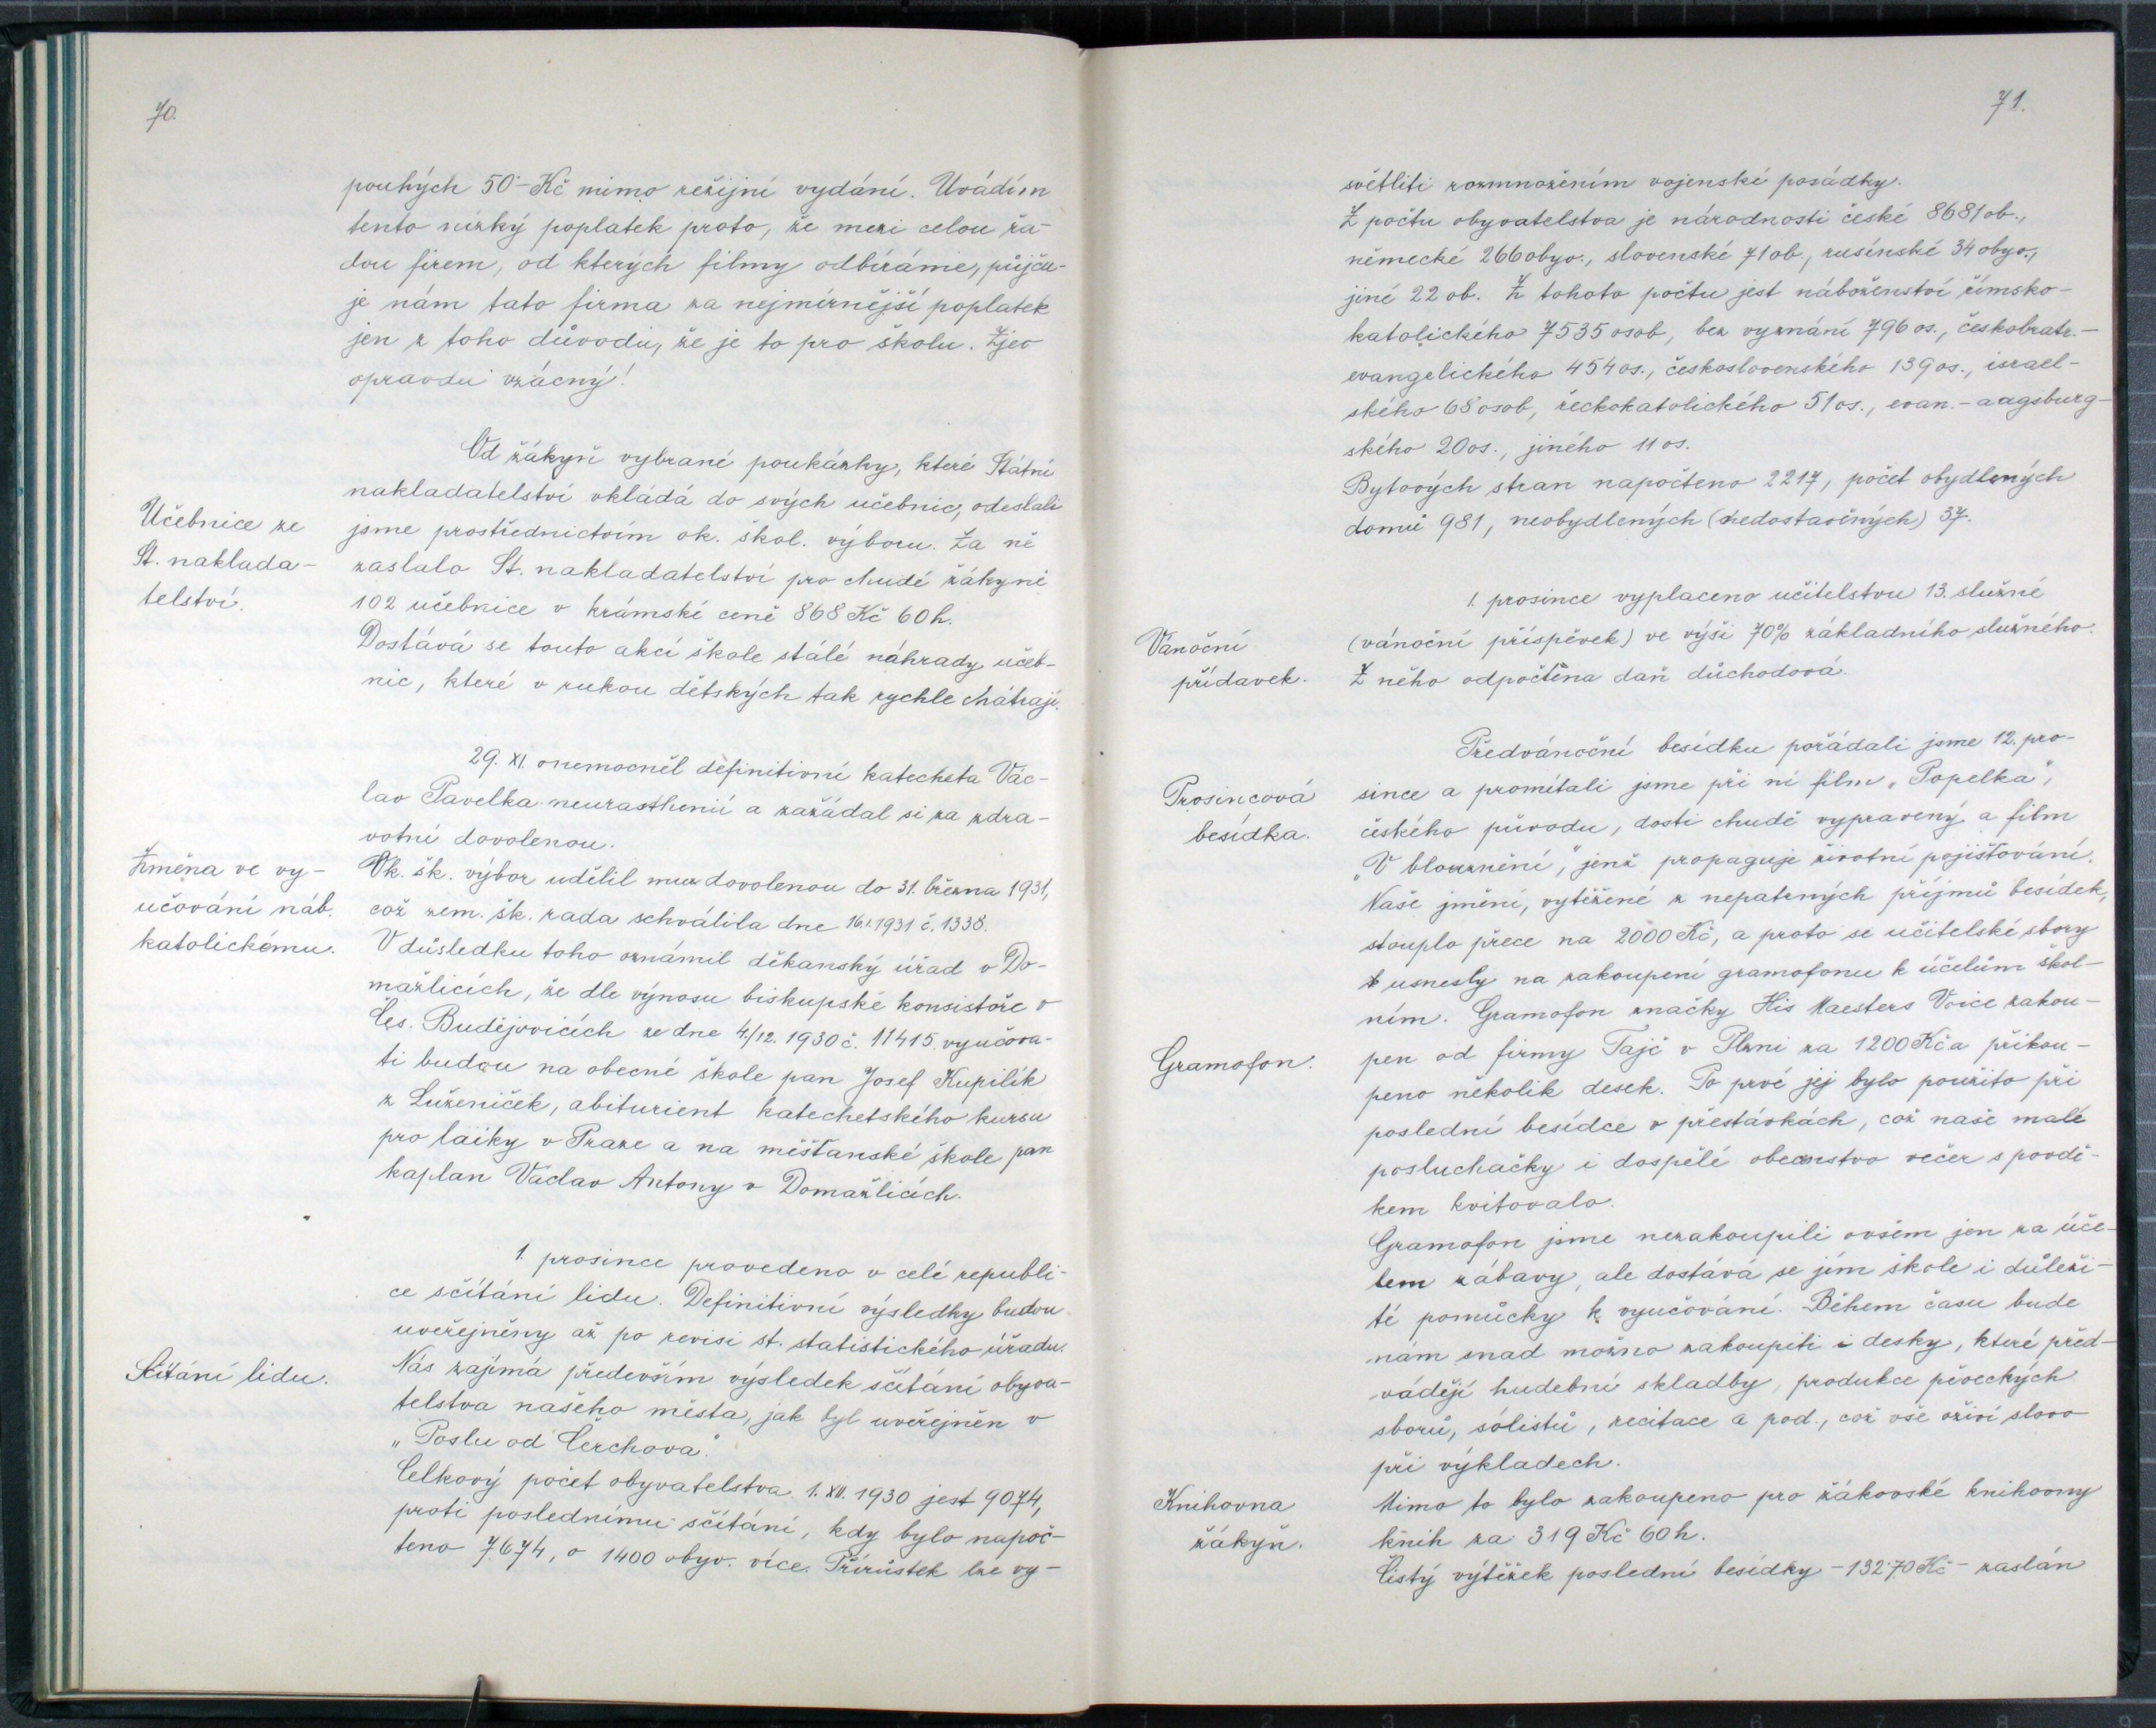 70.
pouhých 50·– Kč mimo režijní vydání. Uvádím
tento nízký poplatek proto, že mezi celou řa-
dou firem, od kterých filmy odbíráme, půjču-
je nám tato firma za nejmírnější poplatek
jen z toho důvodu, že je to pro školu. Zjev
opravdu vzácný!
Učebnice ze
St. naklada-
telství.
Od žákyň vybrané poukázky, které Státní
nakladatelství vkládá do svých učebnic, odeslali
jsme prostřednictvím ok. škol. výboru. Za ně
zaslalo St. nakladatelství pro chudé žákyně
102 učebnice v krámské ceně 868 Kč 60 h.
Dostává se touto akcí škole stálé náhrady učeb-
nic, které v rukou dětských tak rychle chátrají.
29. XI. onemocněl definitivní katecheta Vác-
lav Pavelka neurasthenií a zažádal si za zdra-
votní dovolenou.
Změna ve vy-
učování náb.
katolickému.
Ok. šk. výbor udělil mu dovolenou do 31. března 1931,
což zem. šk. rada schválila dne 16.1.1931 č. 1338.
V důsledku toho oznámil děkanský úřad v Do-
mažlicích, že dle výnosu biskupské konsistoře v
Čes. Budějovicích ze dne 4./12. 1930 č. 11415 vyučova-
ti budou na obecné škole pan Josef Kupilík
z Luženiček, abiturient katechetského kursu
pro laiky v Praze a na měšťanské škole pan
kaplan Václav Antony v Domažlicích.
1. prosince provedeno v celé republi-
ce sčítání lidu. Definitivní výsledky budou
uveřejněny až po revisi st. statistického úřadu.
Sčítání lidu.
Nás zajímá především výsledek sčítání obyva-
telstva našeho města, jak byl uveřejněn v
„Poslu od Čerchova“.
Celkový počet obyvatelstva 1. XII. 1930 jest 9074,
proti poslednímu sčítání, kdy bylo napoč-
teno 7674, o 1400 obyv. více. Přírůstek lze vy-
71.
světliti rozmnožením vojenské posádky.
Z počtu obyvatelstva je národnosti české 8681 ob.,
německé 266 obyv., slovenské 71 ob., rusínské 34 obyv.,
jiné 22 ob. Z tohoto počtu jest náboženství římsko-
katolického 7535 osob, bez vyznání 796 os., českobratr.-
evangelického 454 os., československého 139 os., israel-
ského 68 osob, řeckokatolického 51 os., evan.-augsburg-
ského 20 os., jiného 11 os.
Bytových stran napočteno 2217, počet obydlených
domů 981, neobydlených (nedostavěných) 37.
Vánoční
přídavek.
1. prosince vyplaceno učitelstvu 13. služné
(vánoční příspěvek) ve výši 70% základního služného.
Z něho odpočtěna daň důchodová.
Prosincová
besídka.
Předvánoční besídku pořádali jsme 12. pro-
since a promítali jsme při ní film „Popelka“,
českého původu, dosti chudě vypravený a film
„V blouznění“, jenž propaguje životní pojišťování.
Naše jmění, vytěžené z nepatrných příjmů besídek,
stouplo přece na 2000 Kč, a proto se učitelské sbory
usnesly na zakoupení gramofonu k účelům škol-
ním. Gramofon značky His Maesters Voice zakou-
Gramofon.
pen od firmy Tajč v Plzni za 1200 Kč a přikou-
peno několik desek. Po prvé jej bylo použito při
poslední besídce v přestávkách, což naše malé
posluchačky i dospělé obecenstvo večer s povdě-
kem kvitovalo.
Gramofon jsme nezakoupili ovšem jen za úče-
lem zábavy, ale dostává se jím škole i důleži-
té pomůcky k vyučování. Během času bude
nám snad možno zakoupiti i desky, které před-
vádějí hudební skladby, produkce pěveckých
sborů, sólistů, recitace a pod., což vše oživí slovo
při výkladech.
Knihovna
žákyň.
Mimo to bylo zakoupeno pro žákovské knihovny
knih za 319 Kč 60 h.
Čistý výtěžek poslední besídky – 132·70 Kč – zaslán